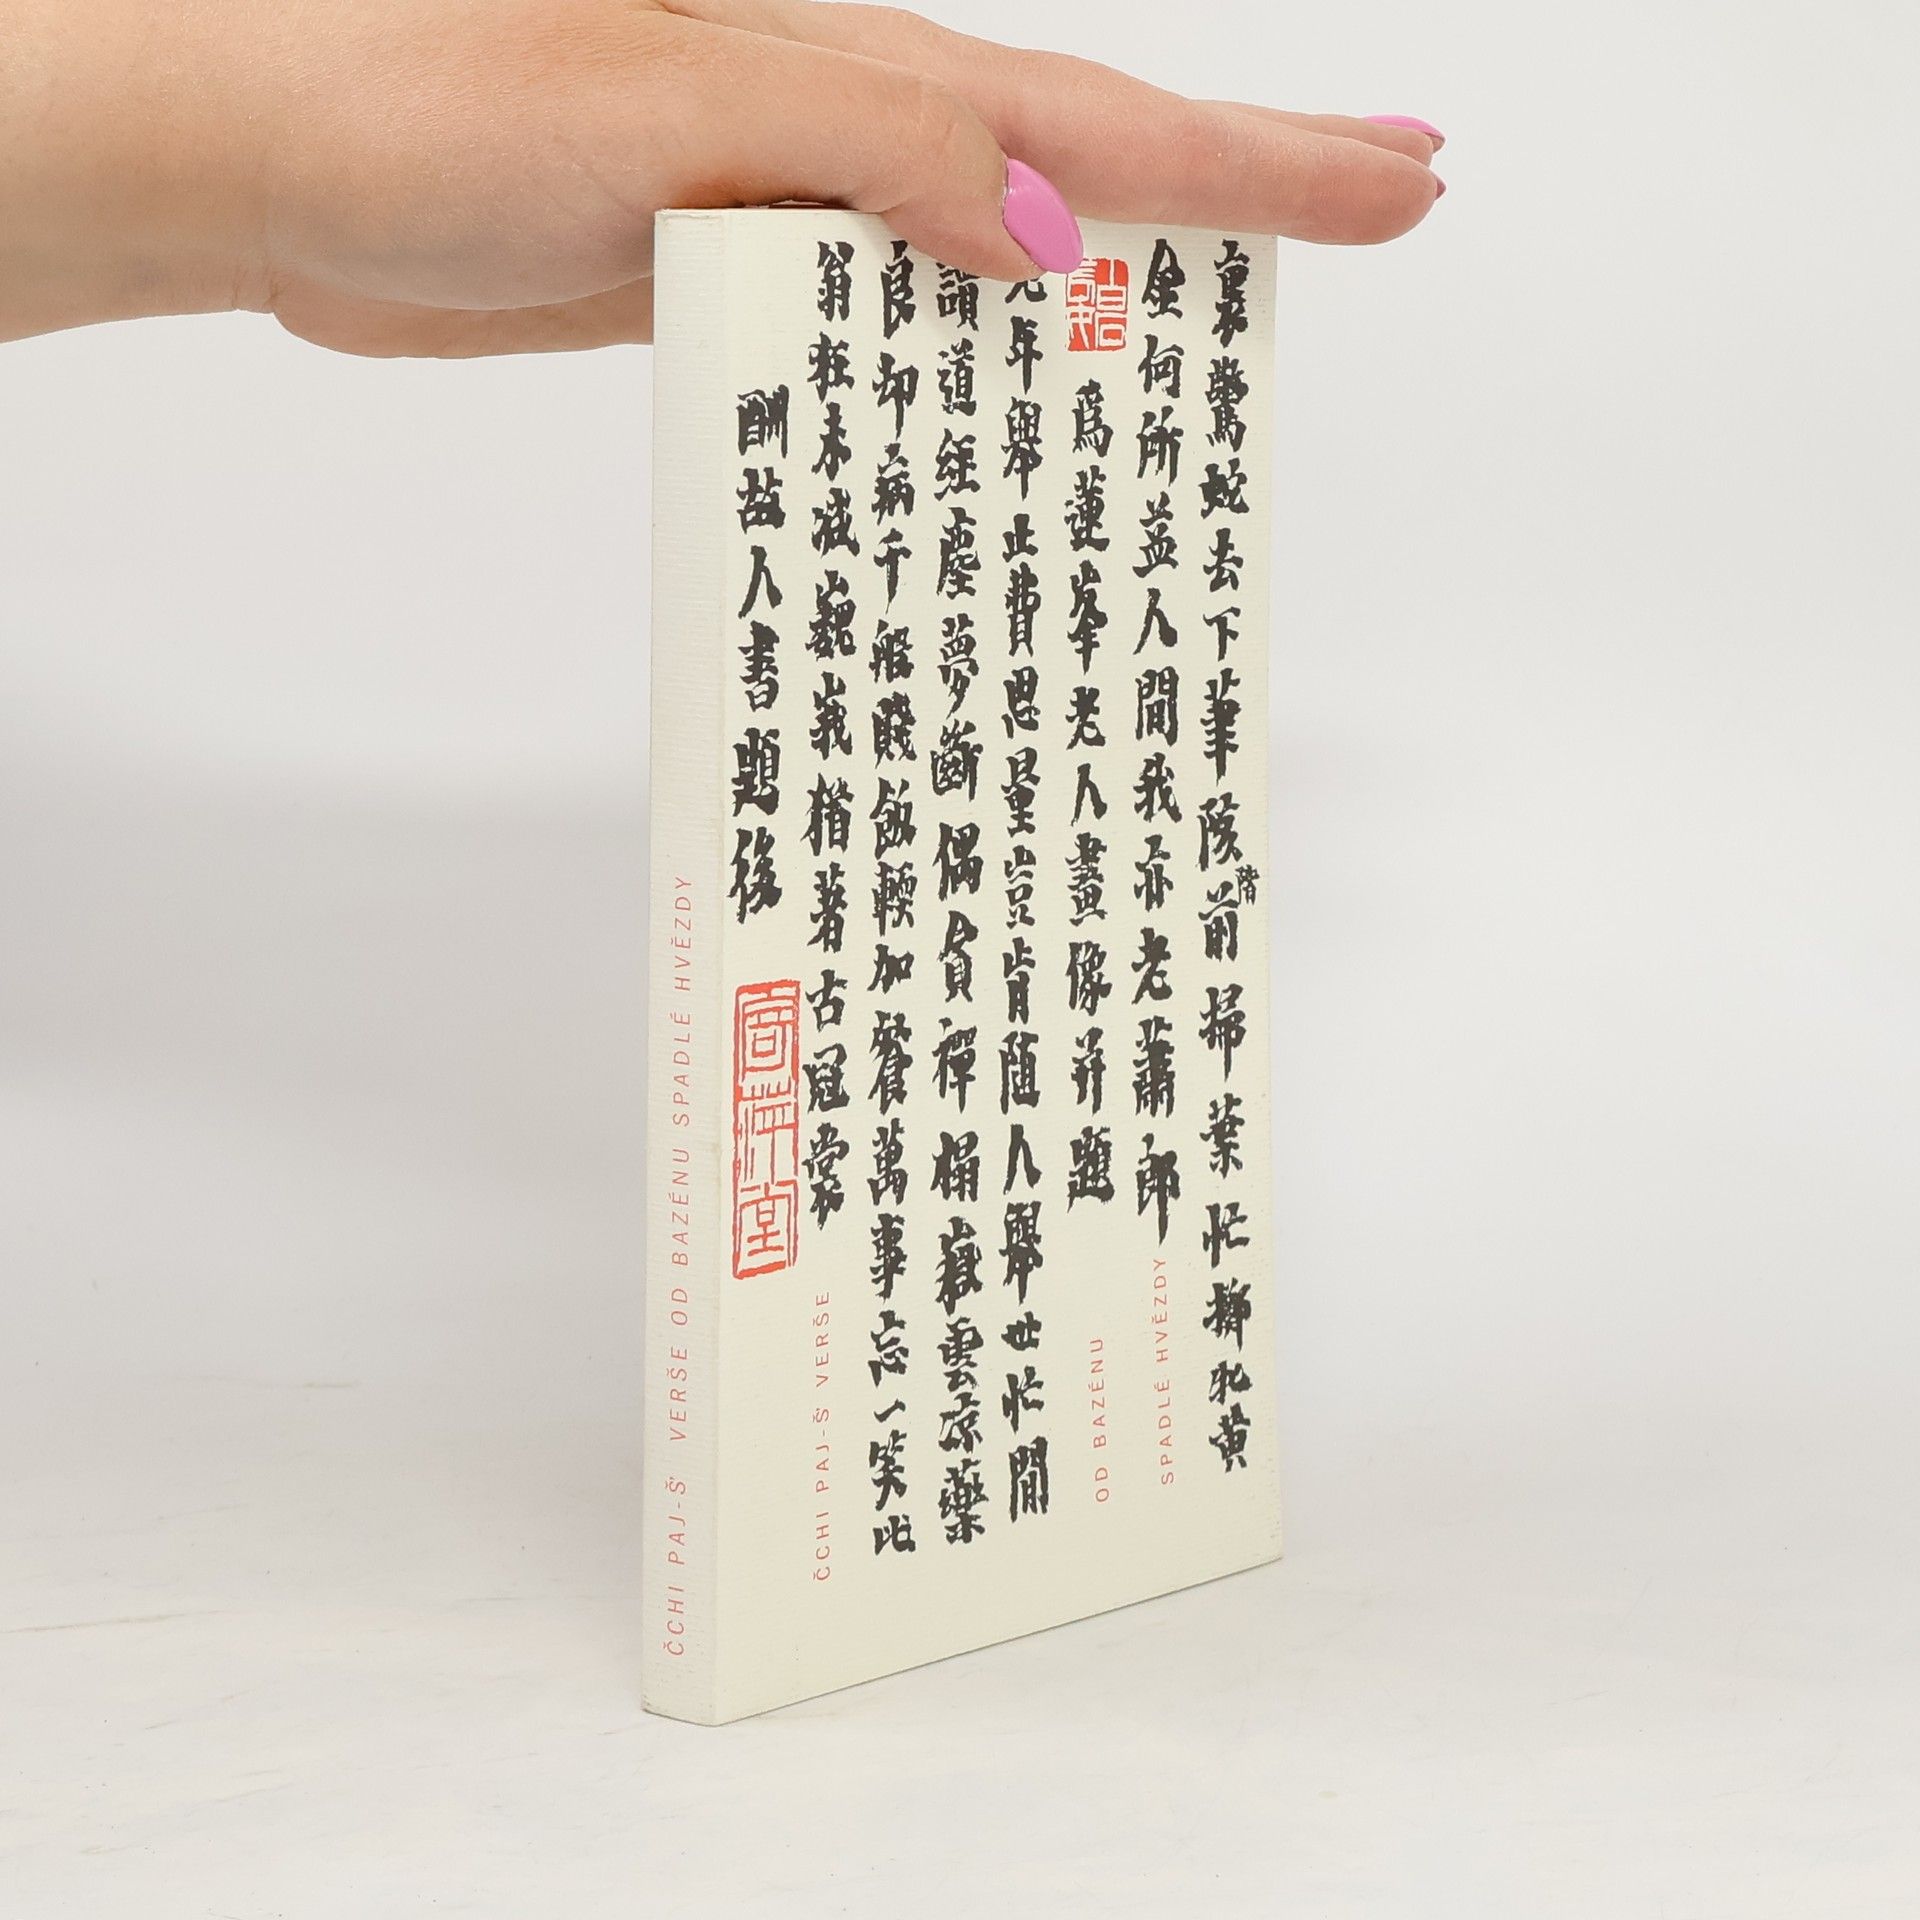 裏驚蛇去下筆陔前掃葉忙擲牝黃
階
金何所益人間我亦老蕭郎
爲蓮峯老人畫像并題
年舉止費思量豈肯随人舉世忙閒
讀道經塵夢斷偶貪禪榻嶽雲涼藥
良却病千般賤飯輭加餐萬事忘一笑此
翁狂未減巍峩猶著古冠裳
酬故人書題後
寄萍堂
ČCHI PAJ-Š' VERŠE
OD BAZÉNU
SPADLÉ HVĚZDY
ČCHI PAJ-Š' VERŠE OD BAZÉNU SPADLÉ HVĚZDY